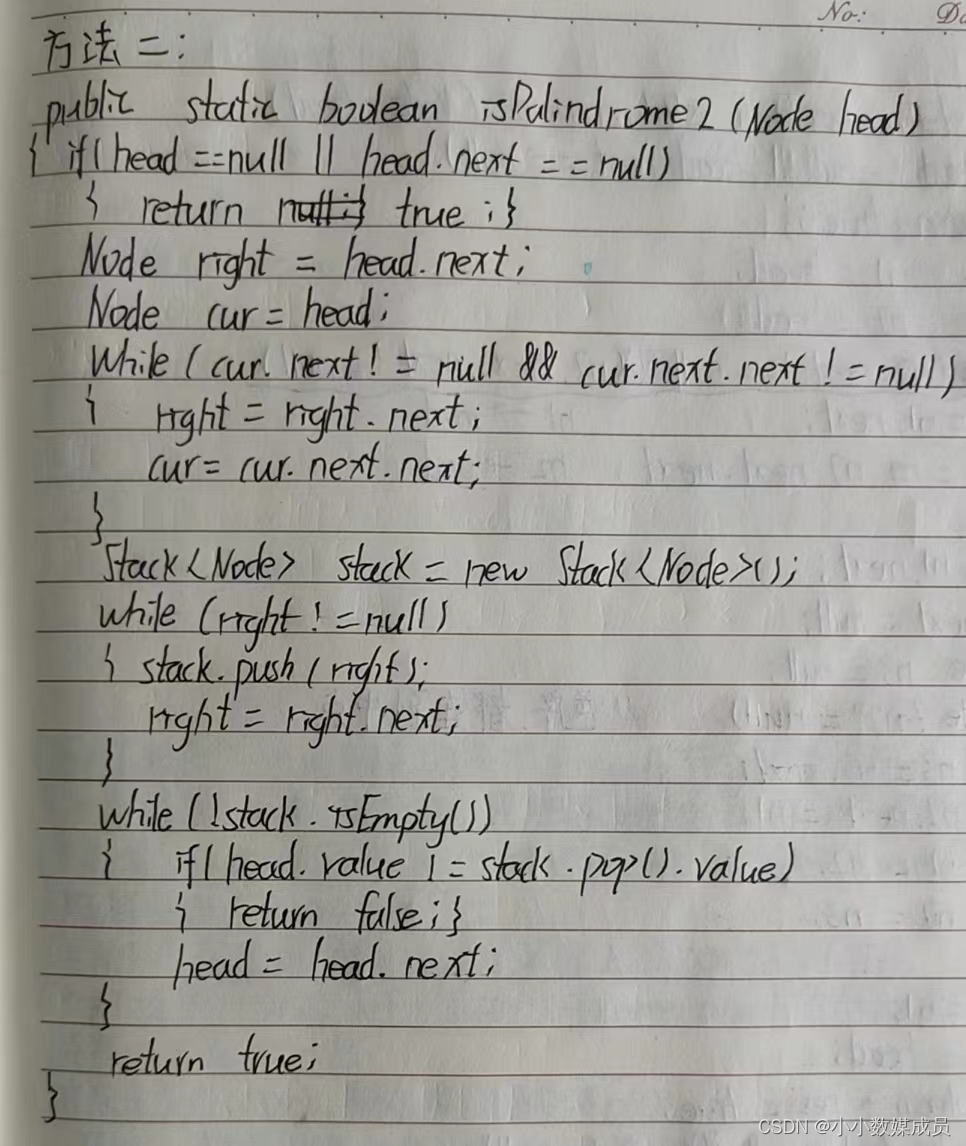 No: Da
方法二:
public static boolean isPalindrome2 (Node head)
{ if( head ==null || head.next ==null)
{ return null;} true ;}
Node right = head.next;
Node cur = head;
While ( cur. next != null && cur.next.next != null)
{ right = right.next;
cur= cur.next.next;
}
Stack<Node> stack = new Stack<Node>();
while (right !=null)
{ stack.push (right);
right = right.next;
}
while (!stack.isEmpty())
{ if( head.value != stack.pop().value)
{ return false;}
head = head.next;
}
return true;
}
CSDN @小小数媒成员